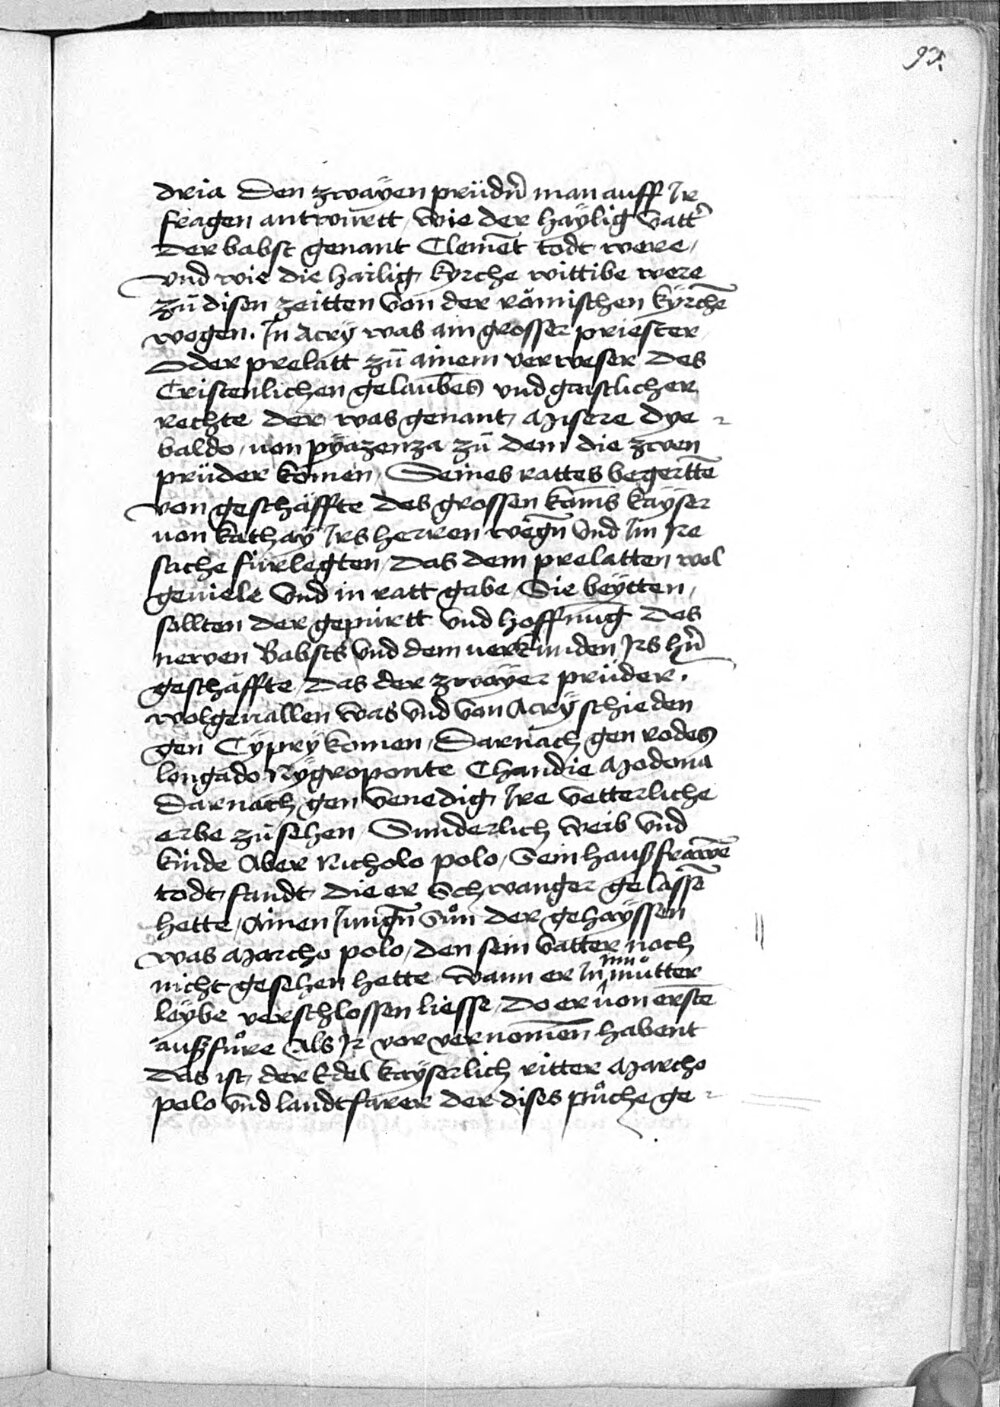 93.
dria Den zwayen prüdn̄ man auff Ir
fragen antwürtt, wie der haÿlig vatt̄
Der babst genant Clemēt todt were,
vnd wie die hailig, kyrche wittibe were
zů disen zeitten von der römischen kÿrchē
wegen. In Acrÿ was ain grosser priester,
Oder prelatt zů ainem verweser Des
Cristenlichen gelaubēs vnd gaistlicher
rechte der was genant, Misere dye-
baldo, von pyazenza zů dem die zwen
prüder komen, Seines rattes begertn̄
von geschäffte des grossen kāms kayser
von kathaÿ Irs herren wegn̄ vnd Im Ire
sache fürlegten, Das dem prelatten, wol
geuiele vnd in ratt gabe, Sie beÿtten,
sollten der gepürtt vnd hoffnūg Des
newen Babsts vnd dem verkünden Irs hn̄
geschäffte, Das der zwaÿer prüder.
wolgeuallen was vnd von Acrÿ schieden
gen Cÿprÿ komen, Darnach gen rodes
longado Nÿgroponte Chandie Modona
Darnach gen venedig, Ire vetterliche
erbe zů sehen, Sunderlich weib vnd
kinde Aber Nicholo polo, Sein haußfrawē
todt, fandt, die er Schwanger gelassē
hette, Ainen Jungn̄ Sůn der gehaÿssen
was Marcho polo, den sein vatter noch
nicht gesehen hette, wann er In mütter
leÿbe verschlossen liesse, Do er von erstē
außfůre Als Ir vor vernomen, habent
Das ist, der Edel kayserlich ritter Marcho
polo vnd landtfarer der dises půche ge-